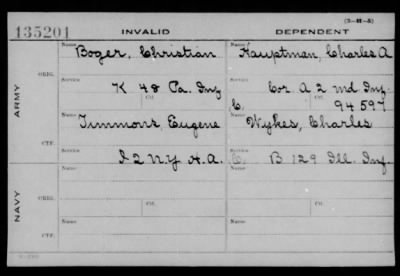 (3-M-5)
135201 INVALID DEPENDENT
Name Boger, Christian Name Hauptman, Charles A
ARMY ORIG. Service K 48 Pa. Inf Service Cor A 2 md Inf.
Ctf. C. Ctf. 94597
CTF. Name Timmons, Eugene Name Wykes, Charles
Service I 2 N.Y H.A. C. Service B 129 Ill. Inf.
NAVY ORIG. Name Ctf. Name Ctf.
Service Service
CTF. Name Name